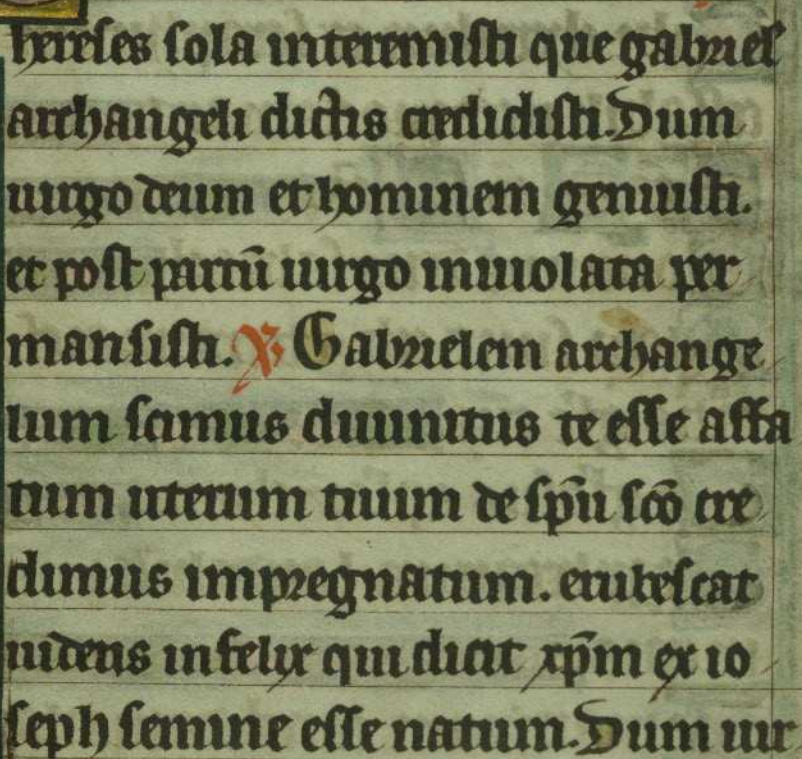 hereses sola interemisti que gabriel
archangeli dictis credidisti. Dum
uirgo deum et hominem genuisti.
et post partū uirgo inuiolata per
mansisti. ℣ Gabrielem archange
lum scimus diuinitus te esse affa
tum uterum tuum de sp̄u sc̄o cre
dimus impregnatum. erubescat
iudeus infelix qui dicit xp̄m ex io
seph semine esse natum. Dum uir